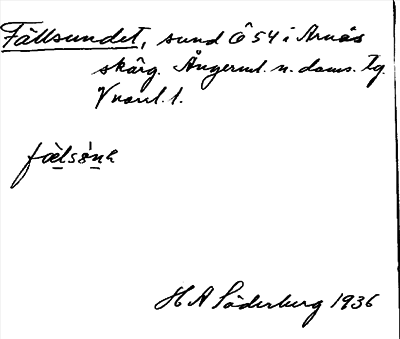 Fällsundet, sund Ö 54 i Arnäs
skärg. Ångerml. n. doms. Tg.
V norrl. 1.
fæ̀lsɞ́nɐ
H A Söderberg 1936